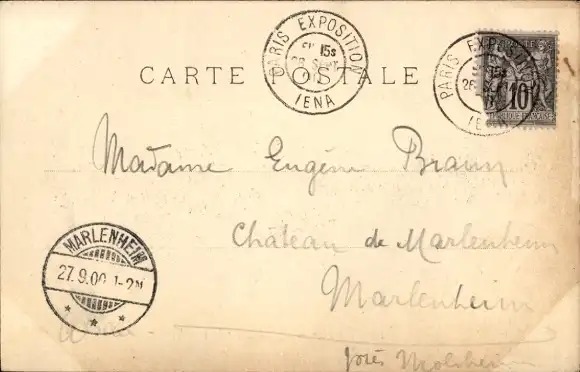 PARIS EXPOSITION
15s
26 SEPT
IENA
PARIS EXPOSITION
15s
26
IENA
10
REPUBLIQUE FRANÇAISE
CARTE POSTALE
Madame Eugène Braun
Château de Marlenheim
Marlenheim
près Molsheim
MARLENHEIM
27.9.00 1-2N